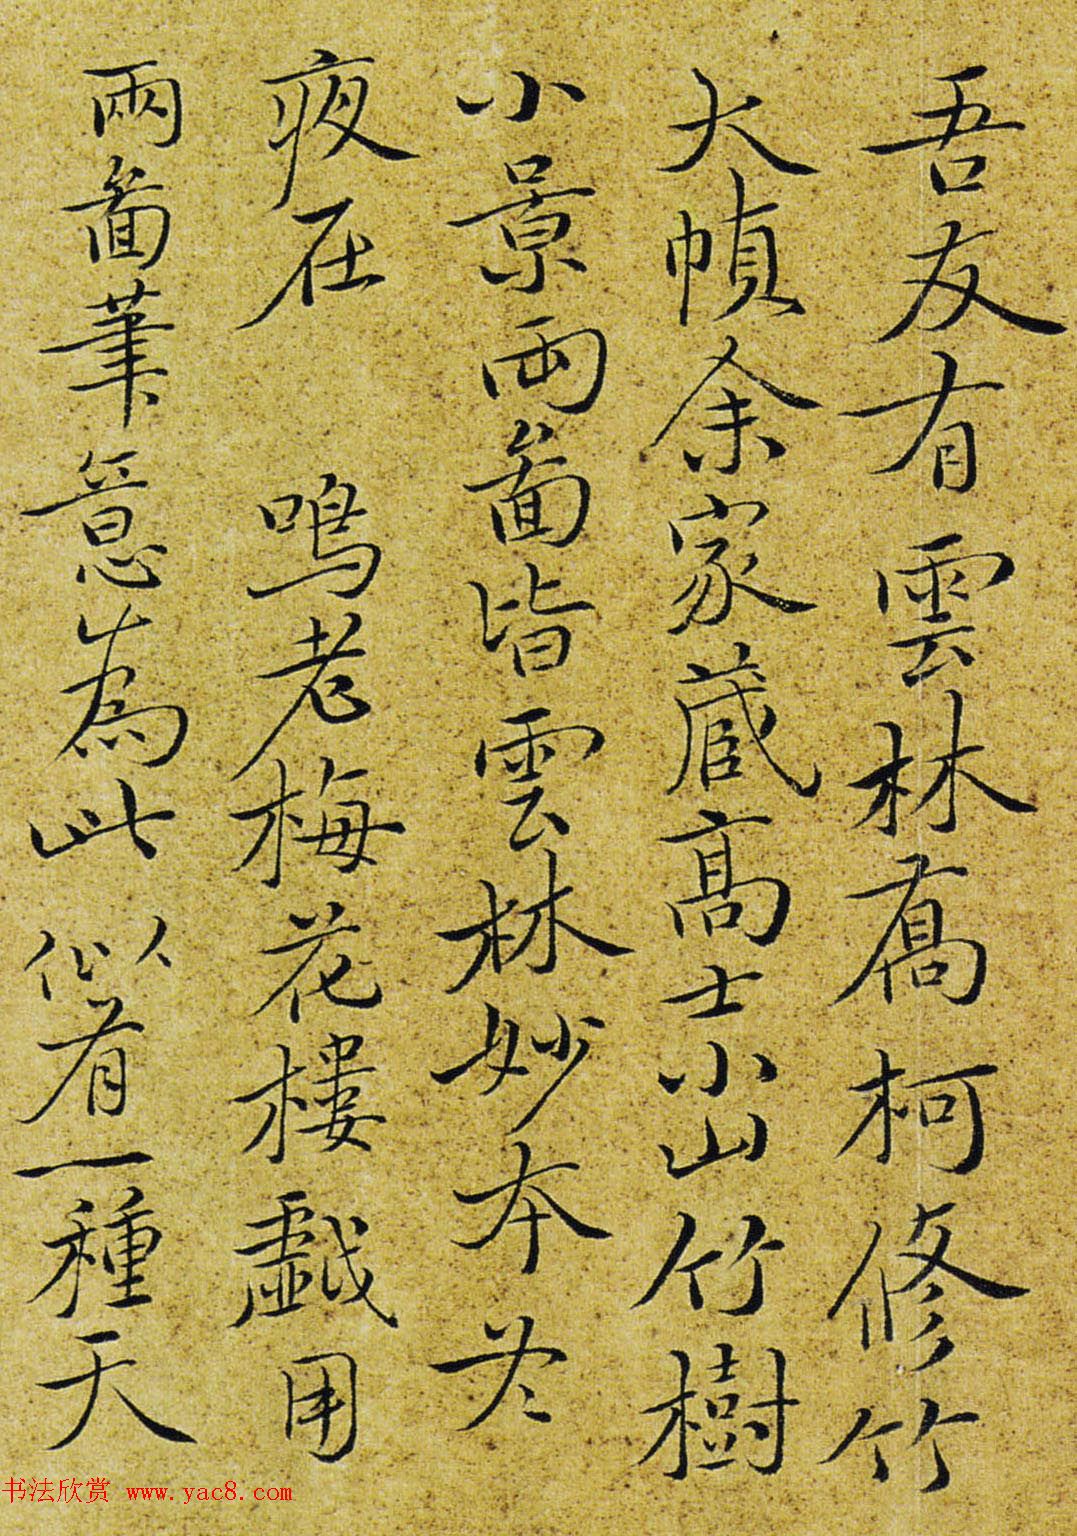 吾友有雲林喬柯修竹
大幀余家藏高士小山竹樹
小景兩箇皆雲林妙本冬
夜在 鳴老梅花樓戲用
兩箇筆意為此似有一種天
书法欣赏 www.yac8.com